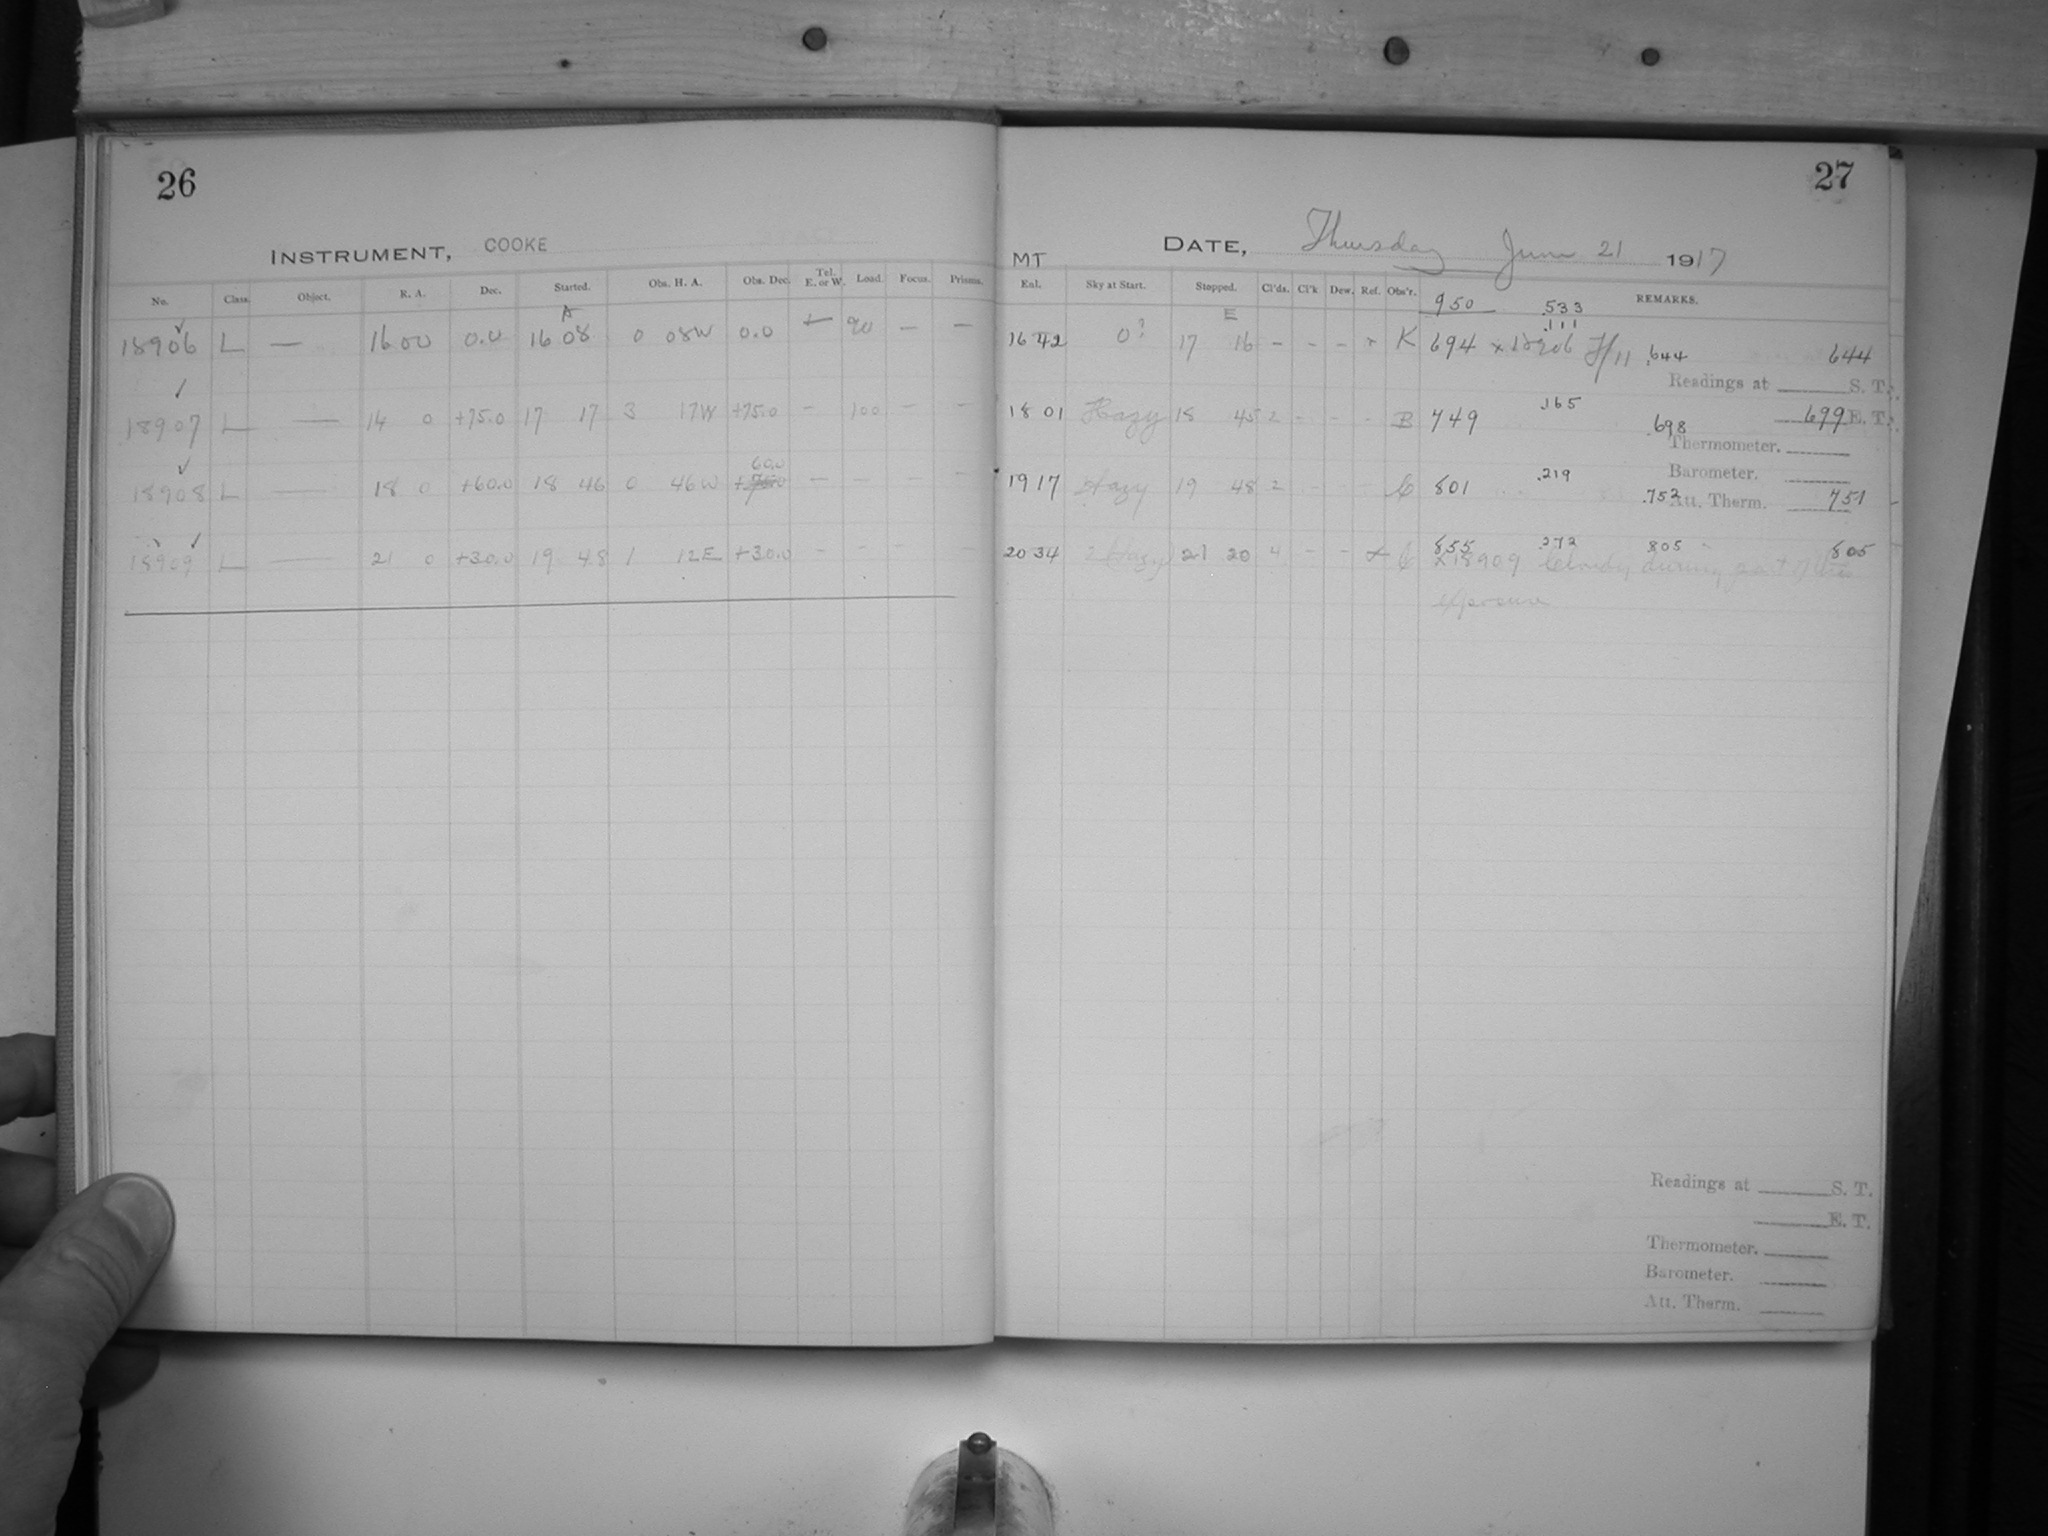 26
INSTRUMENT, COOKE
No. Class. Object. R. A. Dec. Started. Obs. H. A. Obs. Dec. Tel. E. or W. Load. Focus. Prisms.
A
18906 L — 16 00 0.0 16 08 0 08W 0.0 — 90 — —
18907 L — 14 0 +75.0 17 17 3 17W +75.0 — 100 — —
60.0
18908 L — 18 0 +60.0 18 46 0 46W — — —
18909 L — 21 0 +30.0 19 48 1 12E +30.0 — — — —
27
DATE, Thursday June 21 1917
MT
Ent. Sky at Start. Stopped. Cl'ds. Cl'k Dew. Ref. Obs'r. REMARKS.
950 .533
E .111
16 42 0? 17 16 - - - K 694 x 18906 F/11 .644 644
Readings at S. T.
18 01 Hazy 18 45 2 - - - B 749 .165 .698 699 E. T.
Thermometer.
Barometer.
19 17 Hazy 19 48 2 - - - C 801 .219 .752 Att. Therm. 751
855 .272 805 805
20 34 2 Hazy 21 20 4 - - x C x 18909 Cloudy during part of this
exposure
Readings at S. T.
E. T.
Thermometer.
Barometer.
Att. Therm.